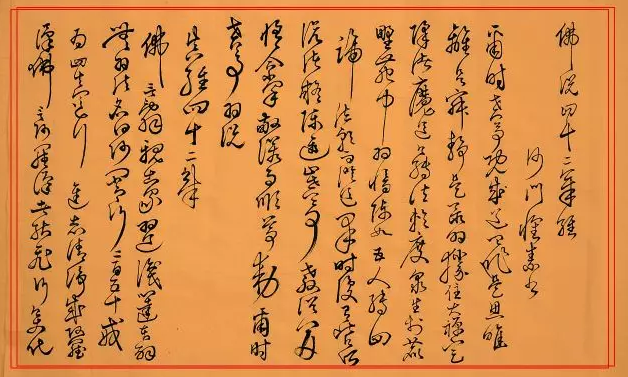 佛說四十二章經
沙門懷素書
爾時世尊既成道已作是思惟
離欲寂靜是最為勝住大禪定
降諸魔道轉法輪度眾生於鹿
野苑中為憍陳如五人轉四
諦法輪而證道果時復有比丘所
說諸疑陳進止世尊教詔一一開
悟合掌敬諾而順尊敕爾時
世尊為說
真經四十二章
佛言辭親出家道識達本解
無為法名曰沙門常行二百五十戒
為四真道行進志清淨成阿羅
漢佛言阿羅漢者能飛行變化